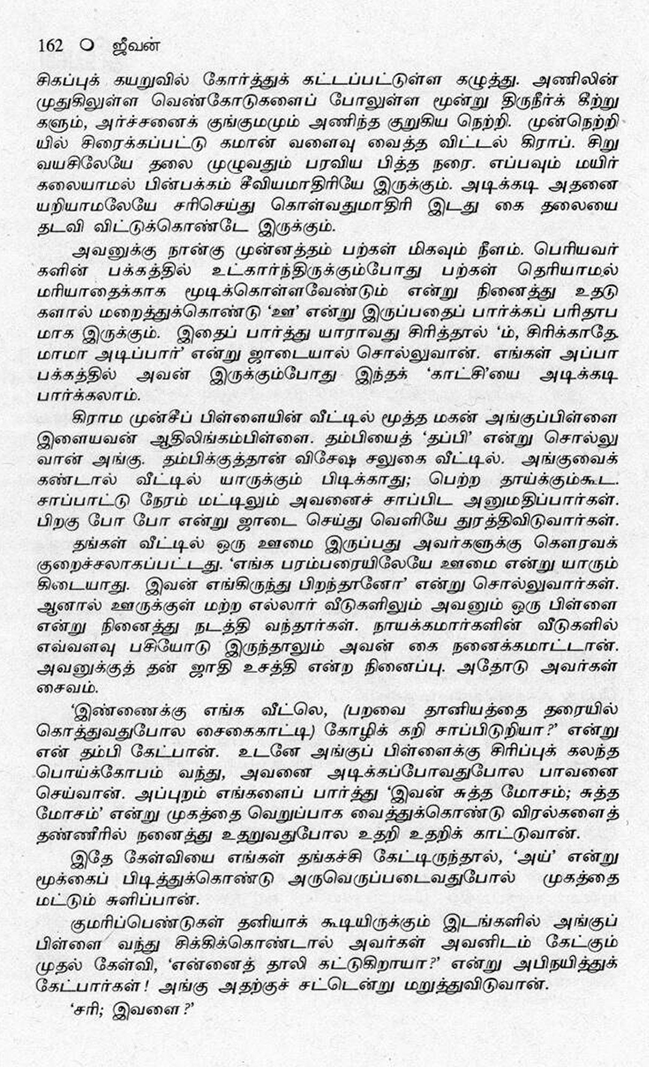 162 O ஜீவன்
சிகப்புக் கயறுவில் கோர்த்துக் கட்டப்பட்டுள்ள கழுத்து. அணிலின்
முதுகிலுள்ள வெண்கோடுகளைப் போலுள்ள மூன்று திருநீர்க் கீற்று
களும், அர்ச்சனைக் குங்குமமும் அணிந்த குறுகிய நெற்றி. முன்நெற்றி
யில் சிரைக்கப்பட்டு கமான் வளைவு வைத்த விட்டல் கிராப். சிறு
வயசிலேயே தலை முழுவதும் பரவிய பித்த நரை. எப்பவும் மயிர்
கலையாமல் பின்பக்கம் சீவியமாதிரியே இருக்கும். அடிக்கடி அதனை
யறியாமலேயே சரிசெய்து கொள்வதுமாதிரி இடது கை தலையை
தடவி விட்டுக்கொண்டே இருக்கும்.
அவனுக்கு நான்கு முன்னத்தம் பற்கள் மிகவும் நீளம். பெரியவர்
களின் பக்கத்தில் உட்கார்ந்திருக்கும்போது பற்கள் தெரியாமல்
மரியாதைக்காக மூடிக்கொள்ளவேண்டும் என்று நினைத்து உதடு
களால் மறைத்துக்கொண்டு ‘ஊ’ என்று இருப்பதைப் பார்க்கப் பரிதாப
மாக இருக்கும். இதைப் பார்த்து யாராவது சிரித்தால் ‘ம், சிரிக்காதே.
மாமா அடிப்பார்’ என்று ஜாடையால் சொல்லுவான். எங்கள் அப்பா
பக்கத்தில் அவன் இருக்கும்போது இந்தக் ‘காட்சி’யை அடிக்கடி
பார்க்கலாம்.
கிராம முன்சீப் பிள்ளையின் வீட்டில் மூத்த மகன் அங்குப்பிள்ளை
இளையவன் ஆதிலிங்கம்பிள்ளை. தம்பியைத் ‘தப்பி’ என்று சொல்லு
வான் அங்கு. தம்பிக்குத்தான் விசேஷ சலுகை வீட்டில். அங்குவைக்
கண்டால் வீட்டில் யாருக்கும் பிடிக்காது; பெற்ற தாய்க்கும்கூட.
சாப்பாட்டு நேரம் மட்டிலும் அவனைச் சாப்பிட அனுமதிப்பார்கள்.
பிறகு போ போ என்று ஜாடை செய்து வெளியே துரத்திவிடுவார்கள்.
தங்கள் வீட்டில் ஒரு ஊமை இருப்பது அவர்களுக்கு கௌரவக்
குறைச்சலாகப்பட்டது. ‘எங்க பரம்பரையிலேயே ஊமை என்று யாரும்
கிடையாது. இவன் எங்கிருந்து பிறந்தானோ’ என்று சொல்லுவார்கள்.
ஆனால் ஊருக்குள் மற்ற எல்லார் வீடுகளிலும் அவனும் ஒரு பிள்ளை
என்று நினைத்து நடத்தி வந்தார்கள். நாயக்கமார்களின் வீடுகளில்
எவ்வளவு பசியோடு இருந்தாலும் அவன் கை நனைக்கமாட்டான்.
அவனுக்குத் தன் ஜாதி உசத்தி என்ற நினைப்பு. அதோடு அவர்கள்
சைவம்.
‘இண்ணைக்கு எங்க வீட்லெ, (பறவை தானியத்தை தரையில்
கொத்துவதுபோல சைகைகாட்டி) கோழிக் கறி சாப்பிடுறியா?’ என்று
என் தம்பி கேட்பான். உடனே அங்குப் பிள்ளைக்கு சிரிப்புக் கலந்த
பொய்க்கோபம் வந்து, அவனை அடிக்கப்போவதுபோல பாவனை
செய்வான். அப்புறம் எங்களைப் பார்த்து ‘இவன் சுத்த மோசம்; சுத்த
மோசம்’ என்று முகத்தை வெறுப்பாக வைத்துக்கொண்டு விரல்களைத்
தண்ணீரில் நனைத்து உதறுவதுபோல உதறி உதறிக் காட்டுவான்.
இதே கேள்வியை எங்கள் தங்கச்சி கேட்டிருந்தால், ‘அய்’ என்று
மூக்கைப் பிடித்துக்கொண்டு அருவெருப்படைவதுபோல் முகத்தை
மட்டும் சுளிப்பான்.
குமரிப்பெண்டுகள் தனியாக் கூடியிருக்கும் இடங்களில் அங்குப்
பிள்ளை வந்து சிக்கிக்கொண்டால் அவர்கள் அவனிடம் கேட்கும்
முதல் கேள்வி, ‘என்னைத் தாலி கட்டுகிறாயா?’ என்று அபிநயித்துக்
கேட்பார்கள்! அங்கு அதற்குச் சட்டென்று மறுத்துவிடுவான்.
‘சரி; இவளை?’